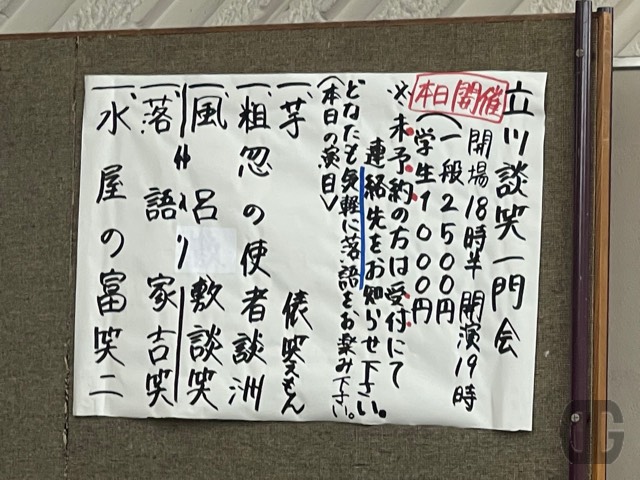 立川談笑一門会
本日開催
開場18時半 開演19時
(一般2500円
学生1000円
※未予約の方は受付にて
連絡先をお知らせ下さい。
どなたも気軽に落語をお楽み下さい。
〈本日の演目〉
一、芋 俵 笑えもん
一、粗忽の使者 談洲
一、風呂敷 談笑
仲入り
一、落語家 吉笑
一、水屋の富 笑二